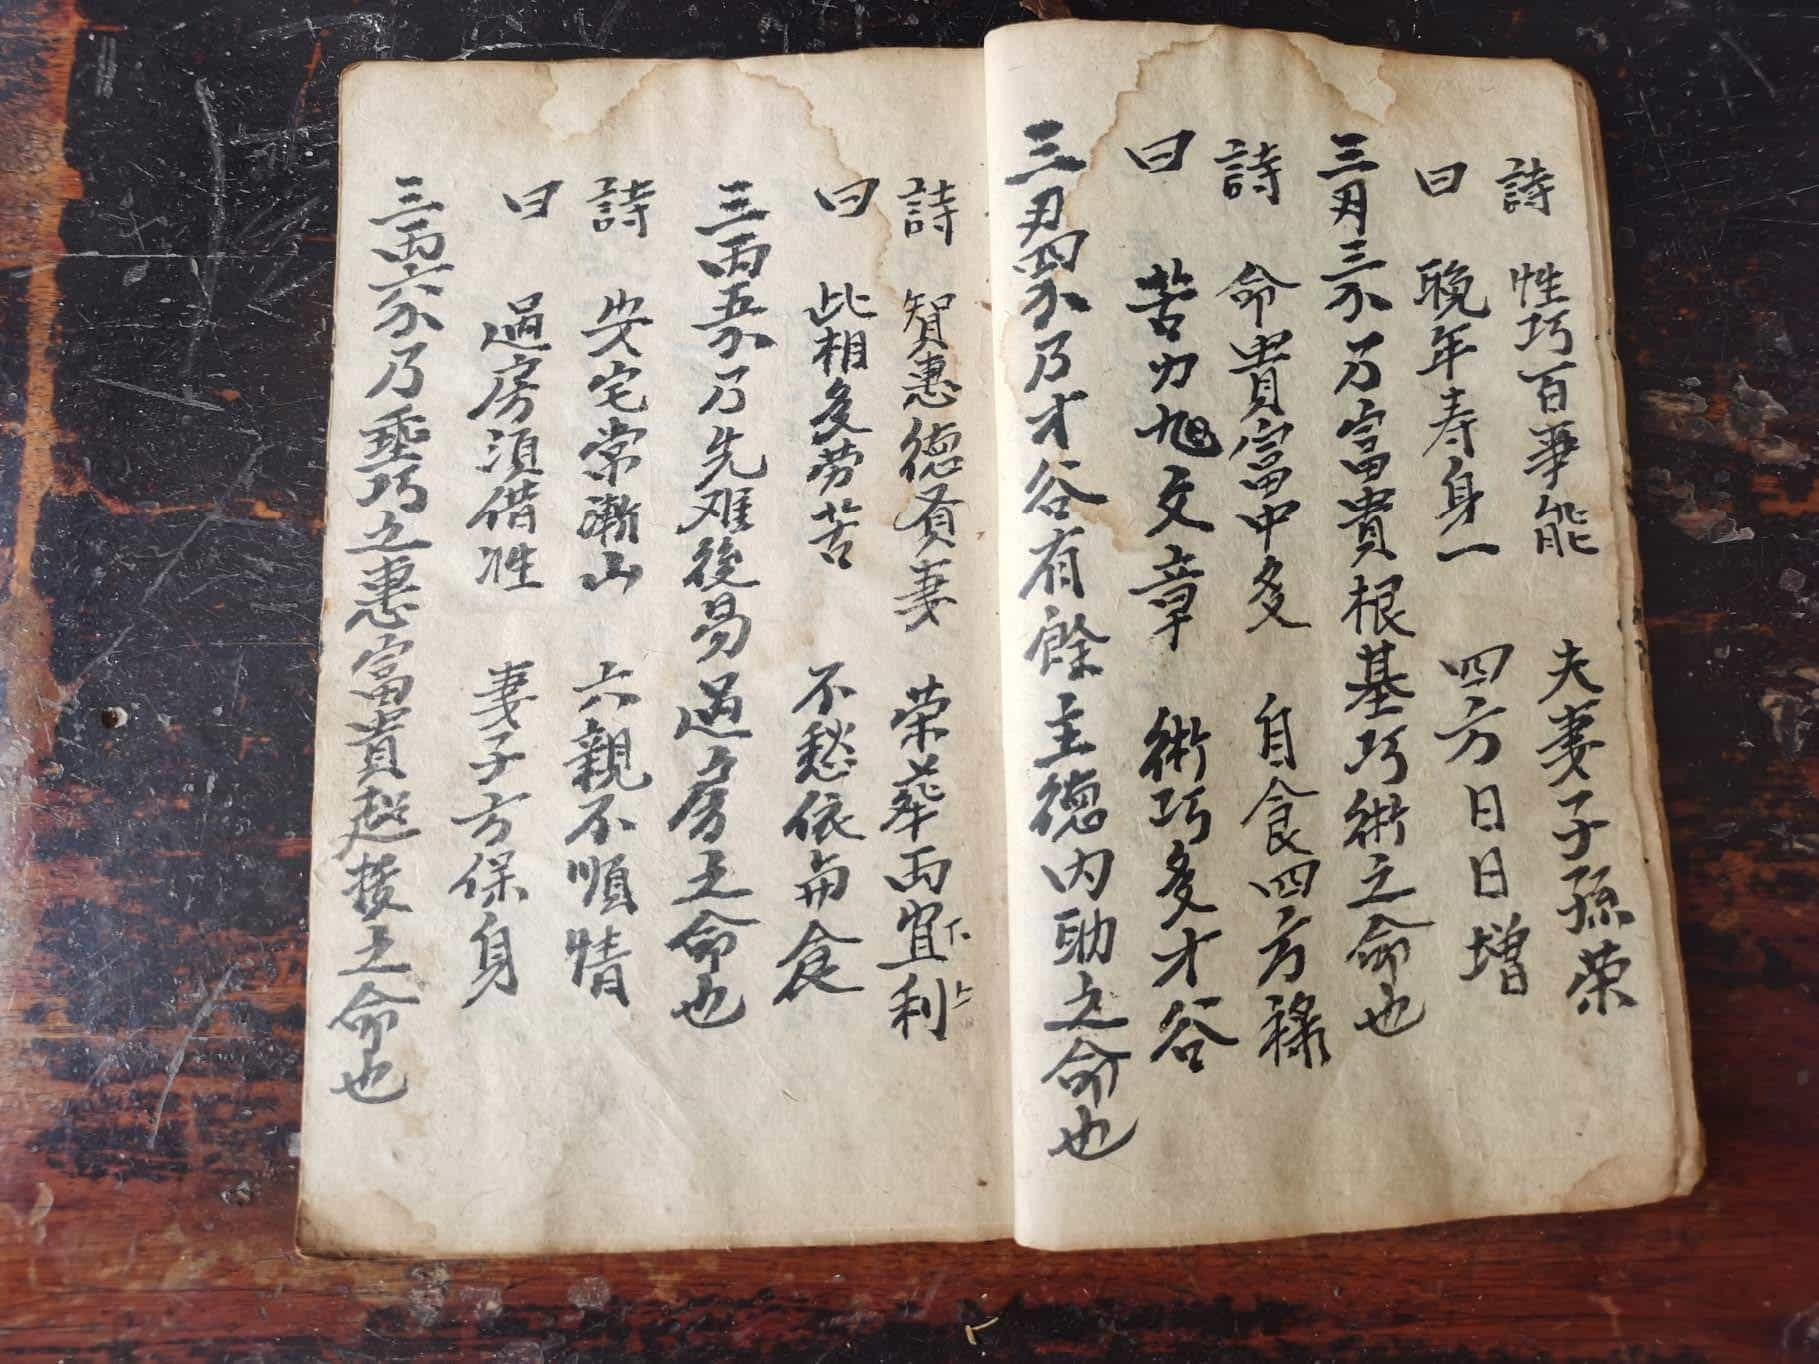 詩 性巧百事能 夫妻子孫榮
曰 晚年寿身一 四方日日增
三月三分乃富貴根基巧術之命也
詩 命貴富中多 自食四方祿
曰 苦力旭文章 術巧多才谷
三刄四分乃才谷有餘主德内助之命也
詩 智惠德負妻 荣華両宜利
曰 此相多劳苦 不愁依與食
三両五分乃先难後易過房之命也
詩 失宅常漸山 六親不順情
曰 過房須借性 妻子方保身
三両六分乃垂巧之惠富貴起拔之命也